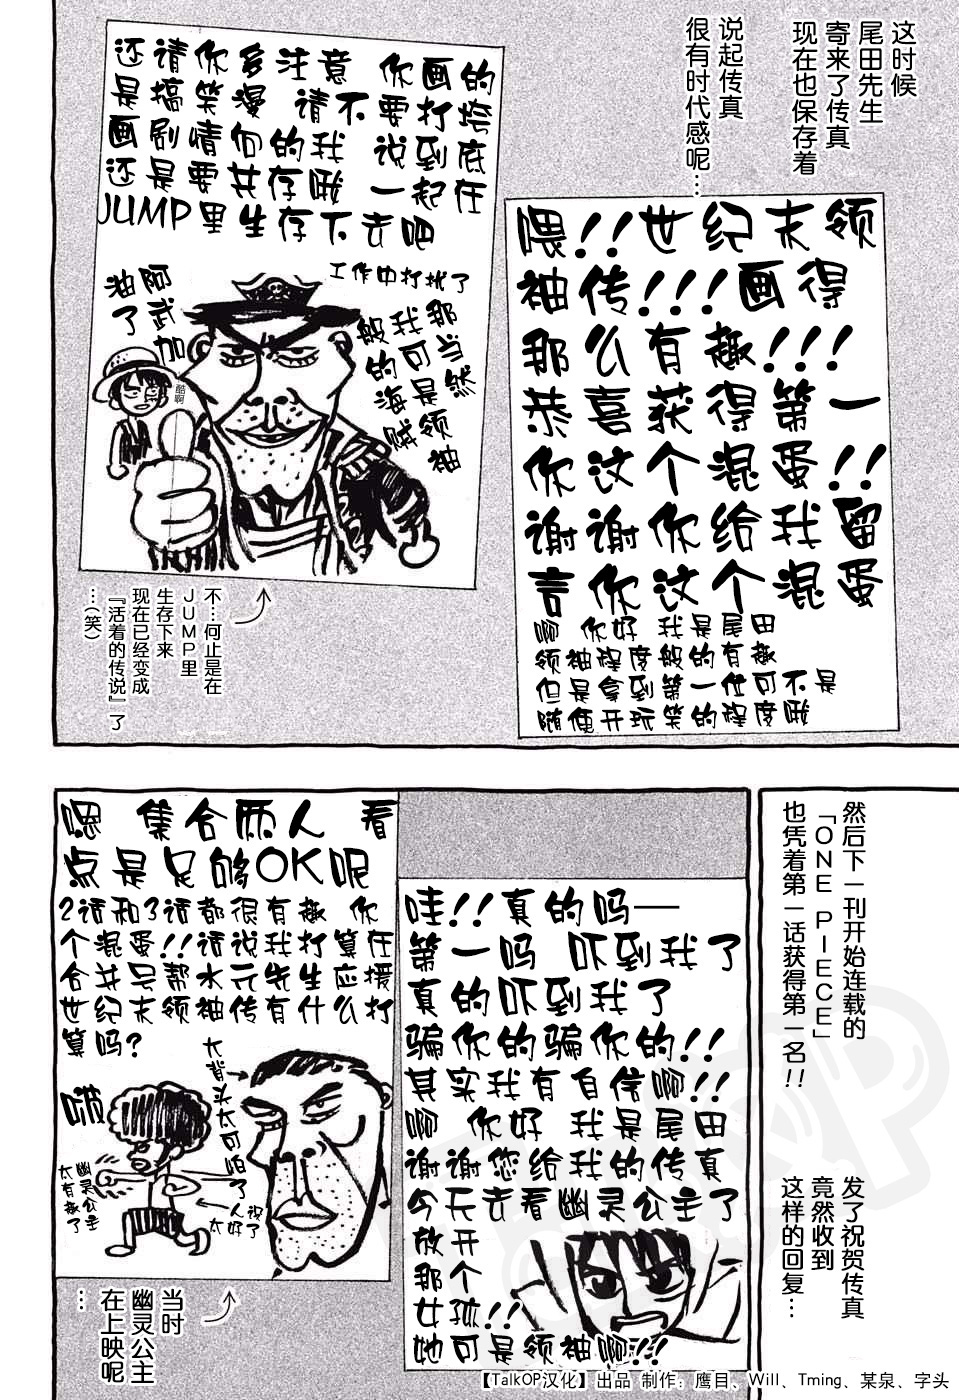 这时候
尾田先生
寄来了传真
现在也保存着
说起传真
很有时代感呢…
喂!!世纪末领
袖传!!!画得
那么有趣!!!
恭喜获得第一
你这个混蛋!!
谢谢你给我留
言你这个混蛋
啊 你好 我是尾田
领袖程度般的有趣
但是拿到第一位可不是
随便开玩笑的程度哦
还请你多注意 你画的
是搞笑漫 请不要打搭
画剧情向的我 说到底
还是要共存哦 一起在
JUMP里生存下去吧
工作中打扰了
那当然
我可是领袖
般的海贼
阿武加
油了
酷啊
不…何止是在
JUMP里
生存下来
现在已经变成
『活着的传说』了
…(笑)
然后下一刊开始连载的
「ONE PIECE」
也凭着第一话获得第一名!!
发了祝贺传真
竟然收到
这样的回复…
哇!!真的吗——
第一吗 吓到我了
真的吓到我了
骗你的骗你的!!
其实我有自信啊!!
啊 你好 我是尾田
谢谢您给我的传真
今天去看幽灵公主了
放开
那个
女孩!!
她可是领袖啊!!
嗯 集合两人 看
点是足够OK呢
2话和3话都很有趣 你
个混蛋!!话说我打算在
合并号帮水元先生应援
世纪末领袖传有什么打
算吗?
大背头太可怕了
人太好
啵
幽灵公主
太有趣了
当时
幽灵公主
在上映呢
…
【TalkOP汉化】出品 制作: 鹰目、Will、Tming、某泉、字头